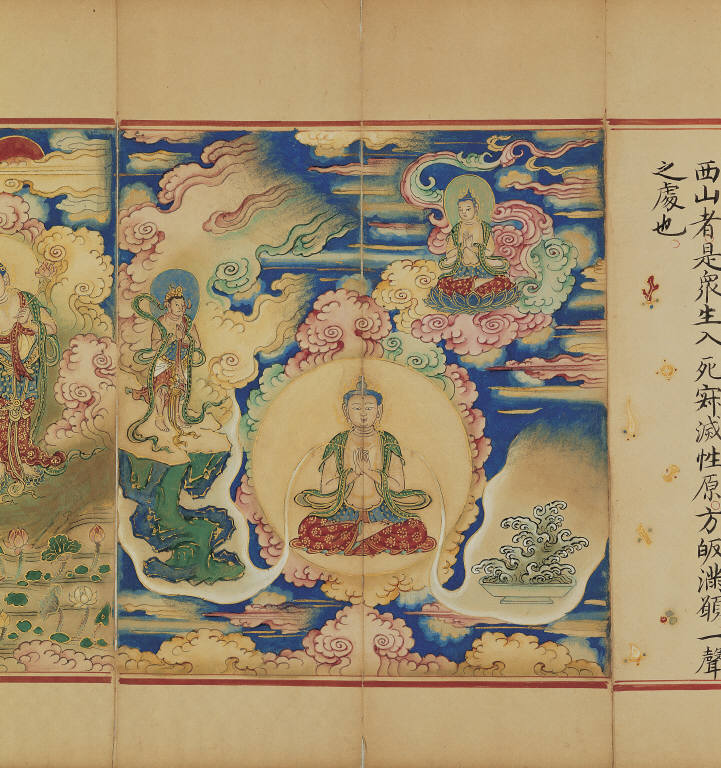 西山者是衆生入死寂滅性原方皈滿願一聲
之處也